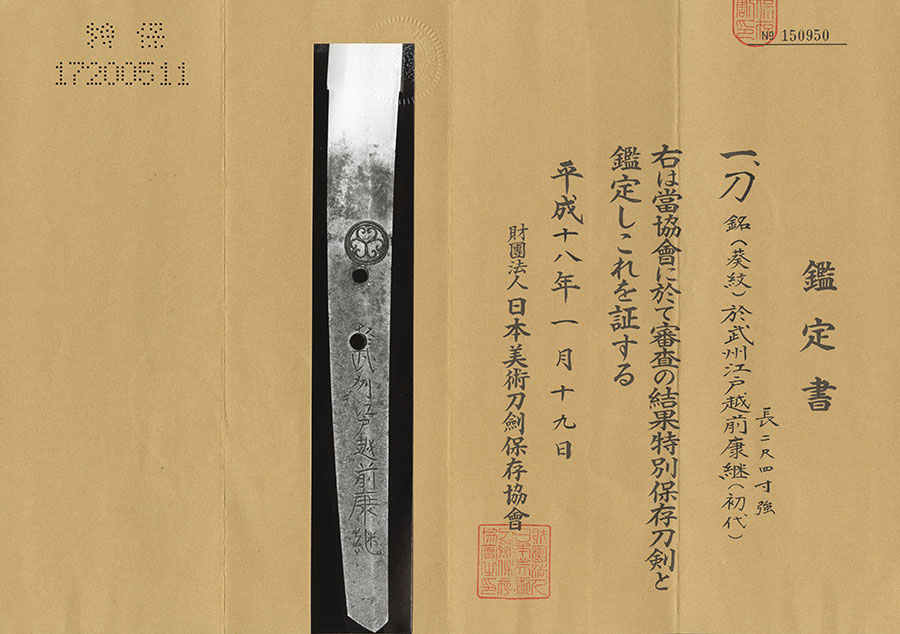 鑑定書
一、刀 銘(葵紋)於武州江戸越前康継(初代)
長二尺四寸強
右は當協會に於て審査の結果特別保存刀剣と
鑑定しこれを証する
平成十八年一月十九日
財團法人日本美術刀劍保存協會
№ 150950
特保
17200511
於武州江戸越前康継